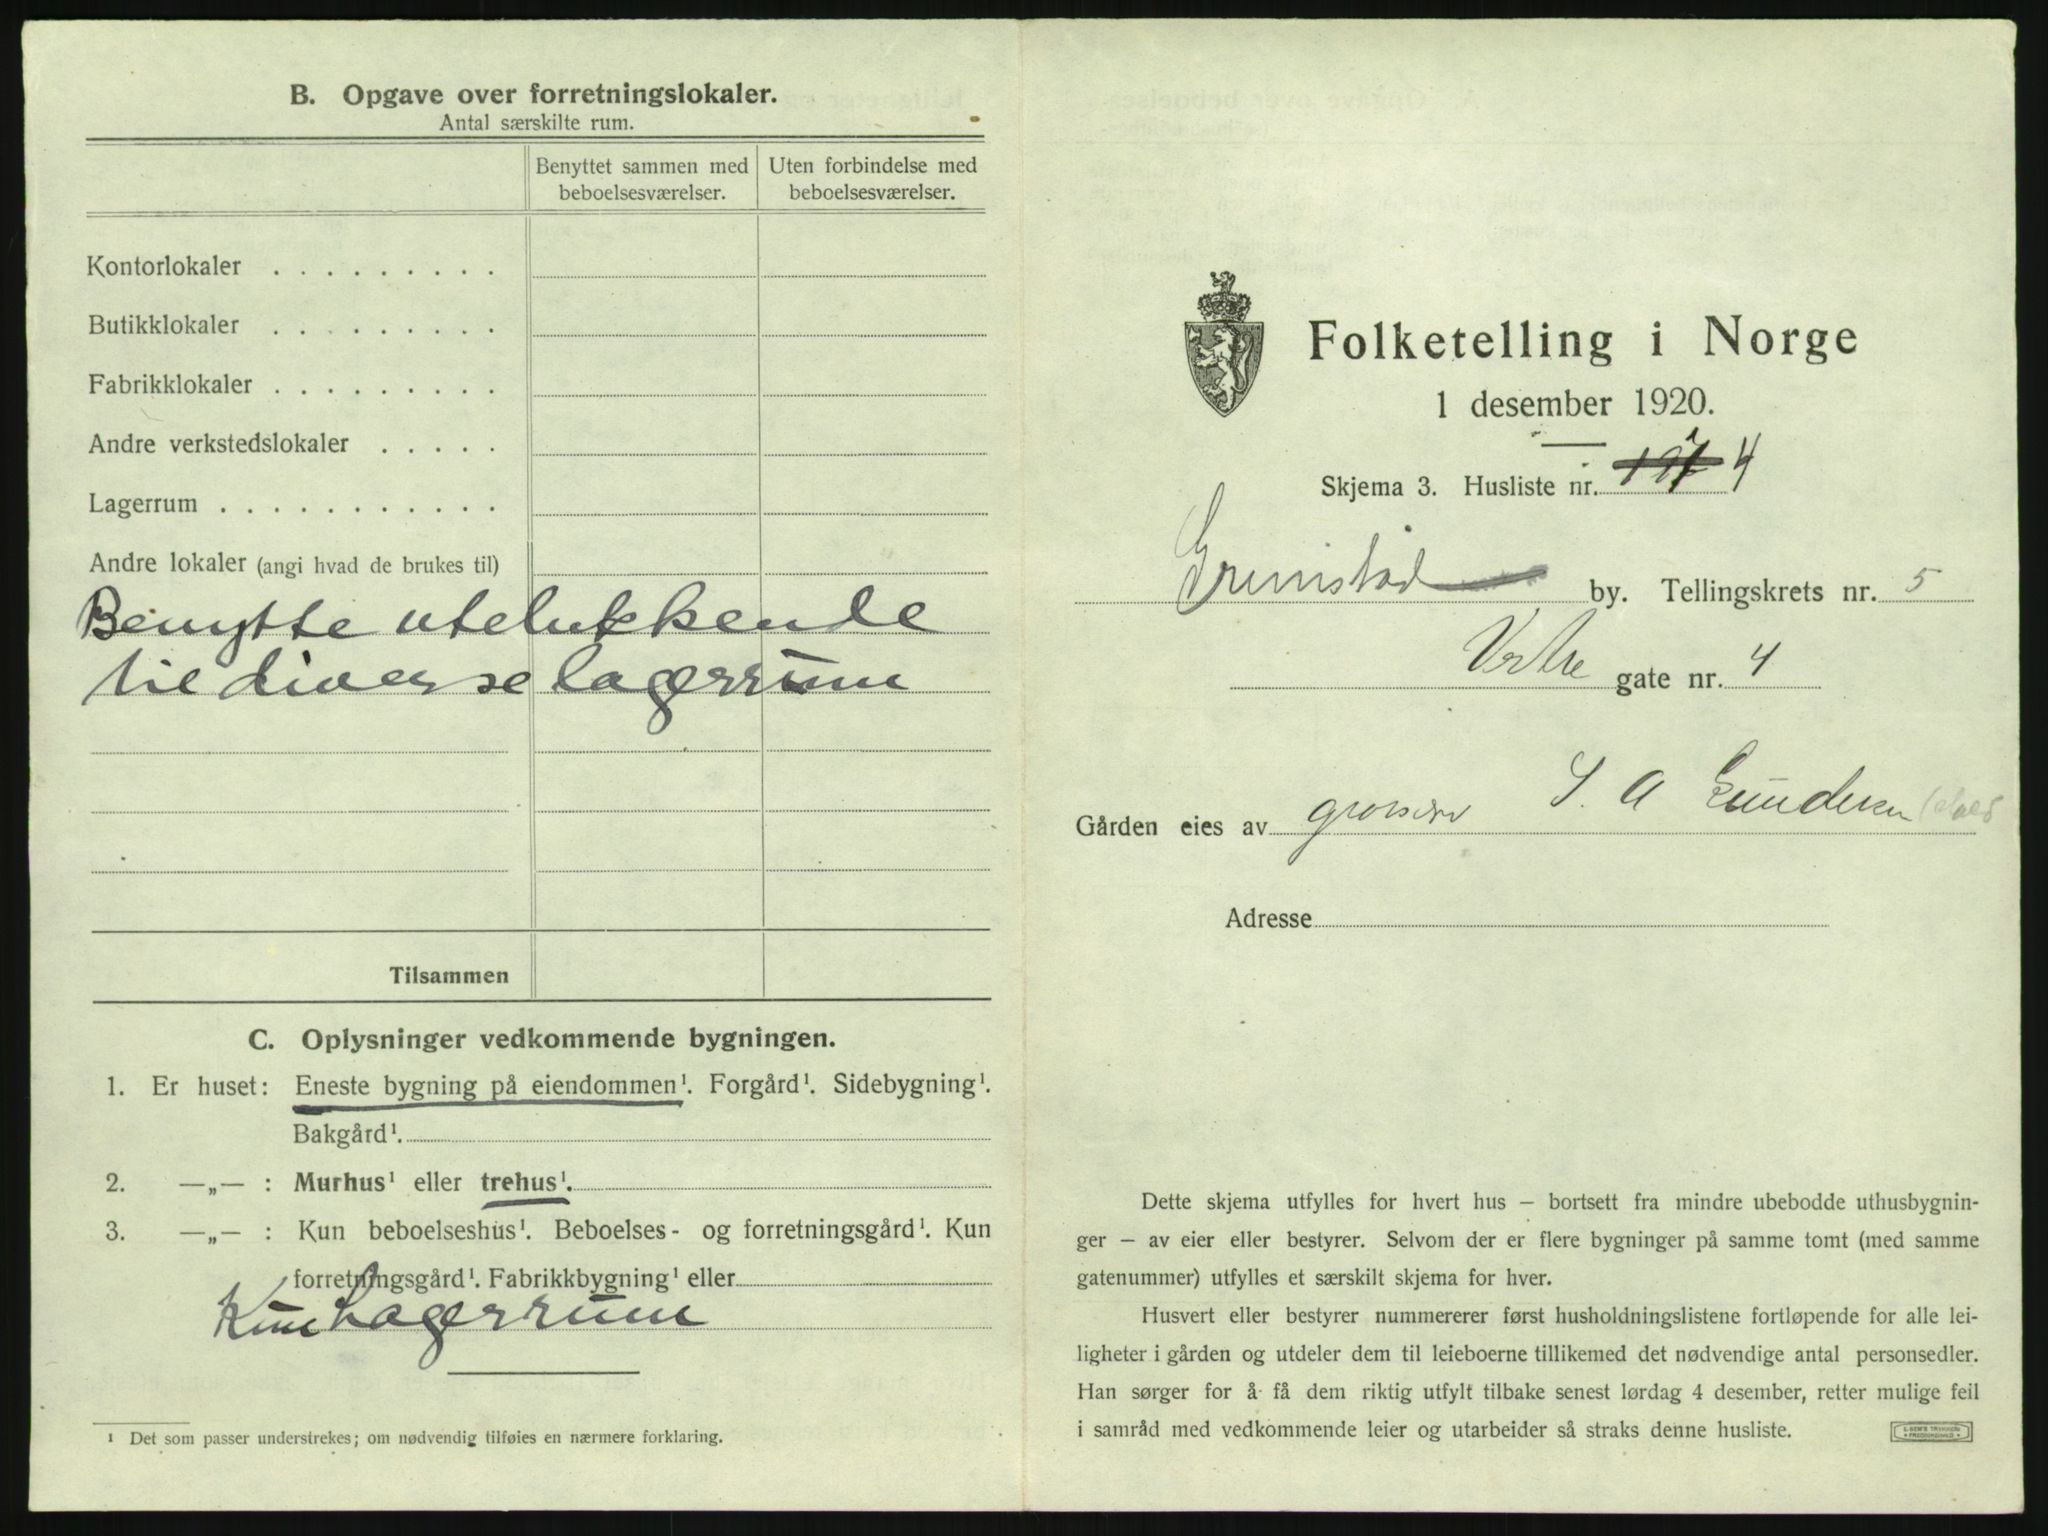 B. Opgave over forretningslokaler.
Antal særskilte rum.
Benyttet sammen med beboelsesværelser.
Uten forbindelse med beboelsesværelser.
Kontorlokaler . . . . . . . . .
Butikklokaler . . . . . . . . .
Fabrikklokaler . . . . . . . . .
Andre verkstedslokaler . . . . .
Lagerrum . . . . . . . . . . . .
Andre lokaler (angi hvad de brukes til)
Benytte utelukkende
til diverse lagerrum
Tilsammen
C. Oplysninger vedkommende bygningen.
1. Er huset: Eneste bygning på eiendommen¹. Forgård¹. Sidebygning¹.
Bakgård¹.
2. —„— : Murhus¹ eller trehus¹.
3. —„— : Kun beboelseshus¹. Beboelses- og forretningsgård¹. Kun
forretningsgård¹. Fabrikkbygning¹ eller
Kun Lagerrum
¹ Det som passer understrekes; om nødvendig tilføies en nærmere forklaring.
Folketelling i Norge
1 desember 1920.
Skjema 3. Husliste nr. 4
Grimstad by. Tellingskrets nr. 5
Vestre gate nr. 4
Gården eies av grosserer S. A Gundersen
Adresse
Dette skjema utfylles for hvert hus – bortsett fra mindre ubebodde uthusbygnin-
ger – av eier eller bestyrer. Selvom der er flere bygninger på samme tomt (med samme
gatenummer) utfylles et særskilt skjema for hver.
Husvert eller bestyrer nummererer først husholdningslistene fortløpende for alle lei-
ligheter i gården og utdeler dem til leieboerne tillikemed det nødvendige antal personsedler.
Han sørger for å få dem riktig utfylt tilbake senest lørdag 4 desember, retter mulige feil
i samråd med vedkommende leier og utarbeider så straks denne husliste.